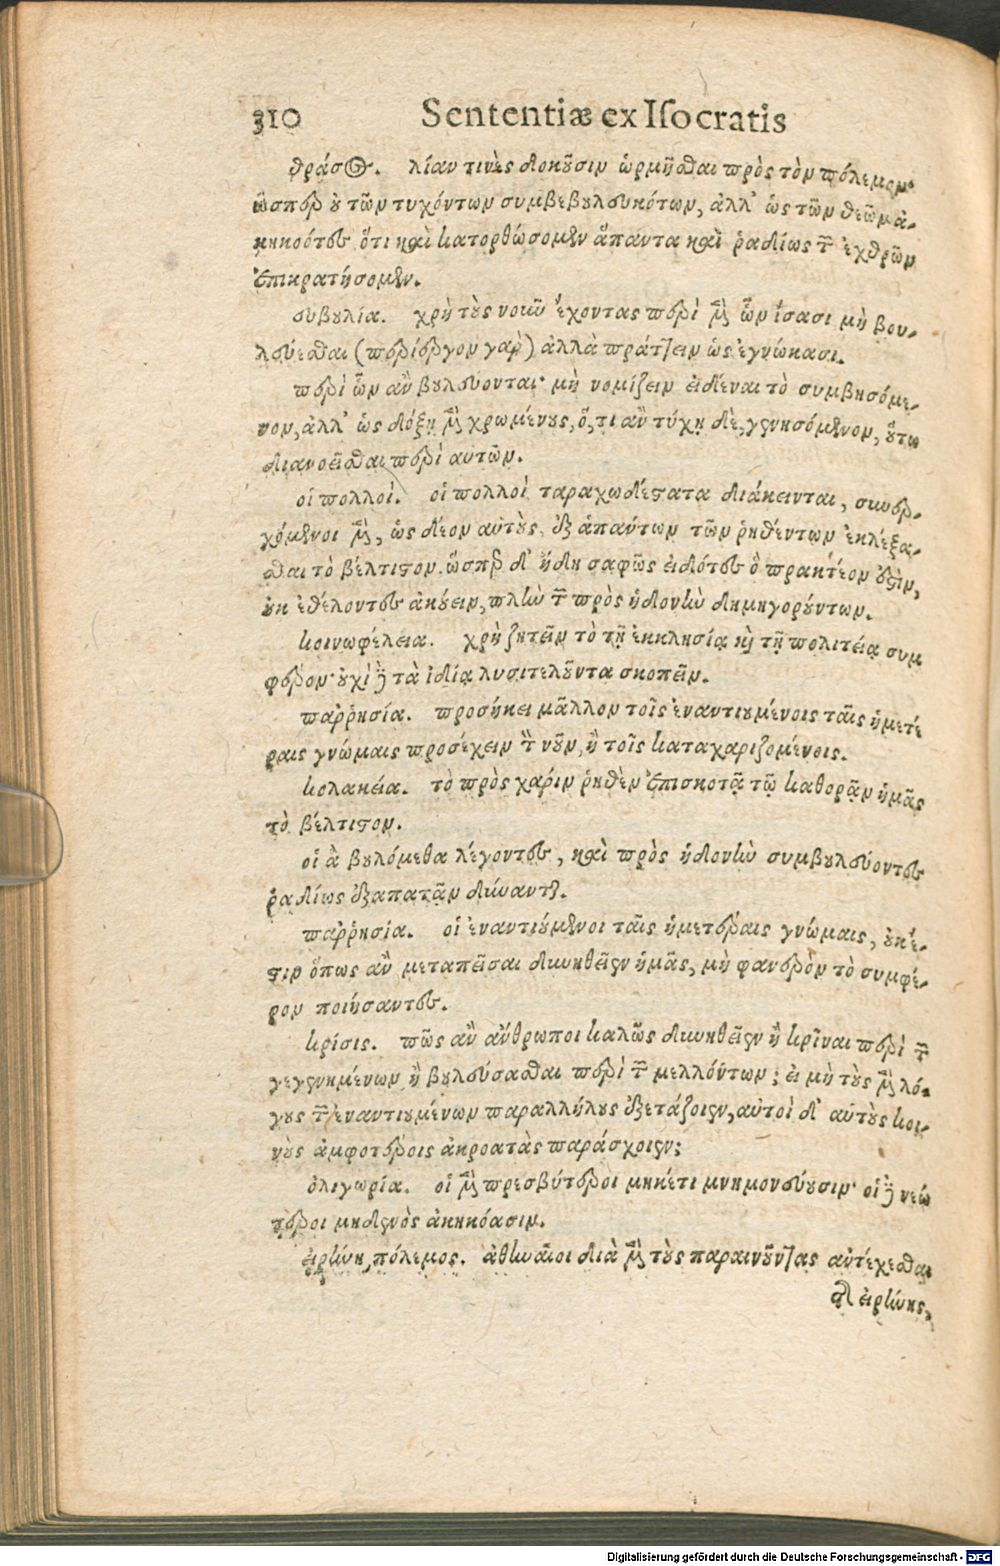 310 Sententiæ ex Isocratis
θράσος. λίαν τινὲς δοκοῦσιν ὡρμῆσθαι πρὸς τὸν πόλεμον·
ὥσπερ οὐ τῶν τυχόντων συμβεβουλευκότων, ἀλλ' ὡς τῶν θεῶν ἀ-
κηκοότες ὅτι καὶ κατορθώσομεν ἅπαντα καὶ ῥαδίως τῶν ἐχθρῶν
ἐπικρατήσομεν.
συβουλία. χρὴ τοὺς νοιῦ ἔχοντας περὶ μὲν ὧν ἴσασι μὴ βου-
λεύεσθαι (περίεργον γαρ) ἀλλὰ πράττειν ὡς ἐγνώκασι.
περὶ ὧν ἂν βουλεύονται· μὴ νομίζειν εἰδέναι τὸ συμβησόμε-
νον, ἀλλ' ὡς δόξῃ μὲν χρωμένους, ὅ, τι ἂν τύχῃ δὲ, γενησόμενον, οὕτω
διανοεῖσθαι περὶ αυτῶν.
οἱ πολλοί. οἱ πολλοὶ ταραχωδέστατα διάκεινται, συνερ-
χόμενοι μὲν, ὡς δέον αὐτοὺς ἐξ ἁπαύτων τῶν ῥηθέντων ἐκλέξα-
σθαι τὸ βέλτιστον. ὥσπερ δ' ἤδη σαφῶς εἰδότες ὃ πρακτέον ἐστὶν,
οὐκ ἐθέλοντες ἀκούειν, πλὴν τῶν πρὸς ἡδονὴν δημηγορούντων.
κοινωφέλεια. χρὴ ζητεῖν τὸ τῇ ἐκκλησίᾳ καὶ τῇ πολιτείᾳ συμ
φέρον· οὐχὶ δὲ τὰ ἰδίᾳ λυσιτελοῦντα σκοπεῖν.
παῤῥησία. προσήκει μᾶλλον τοῖς ἐναντιουμένοις ταῖς ἡμετέ
ραις γνώμαις προσέχειν τὸν νοῦν, ἢ τοῖς καταχαριζομένοις.
κολακεία. τὸ πρὸς χάριν ῥηθὲν ἐπισκοτᾷ τῷ καθορᾷν ἡμᾶς
τὸ βέλτιστον.
οἱ ἃ βουλόμεθα λέγοντες, καὶ πρὸς ἡδονὴν συμβουλεύοντες
ῥαδίως ἐξαπατᾷν δύναντ.
παῤῥησία. οἱ ἐναντιούμενοι ταῖς ἡμετέραις γνώμαις, οὐκ ἔ-
στιν ὅπως ἂν μεταπεῖσαι δυνηθεῖεν ἡμᾶς, μὴ φανερὸν τὸ συμφέ-
ρον ποιήσαντες.
κρίσις. πῶς ἂν ἄνθρωποι καλῶς δυνηθεῖεν ἢ κρῖναι περὶ τῶν
γεγενημένων ἢ βουλεύσασθαι περὶ τῶν μελλόντων; εἰ μὴ τοὺς μὲν λό-
γους τῶν ἐναντιουμένων παραλλήλους ἐξετάζοιεν, αὐτοὶ δ' αὑτοὺς κοι-
νοὺς ἀμφοτέροις ἀκροατὰς παράσχοιεν;
ὀλιγωρία. οἱ μὲν πρεσβύτεροι μηκέτι μνημονεύουσιν· οἱ δὲ νεώ
τεροι μηδενὸς ἀκηκόασιν.
εἰρήνη, πόλεμος. ἀθηναῖοι διὰ μὲν τοὺς παραινοῦντας ἀντέχεσθαι
τῆς εἰρήνης,
Digitalisierung gefördert durch die Deutsche Forschungsgemeinschaft - DFG